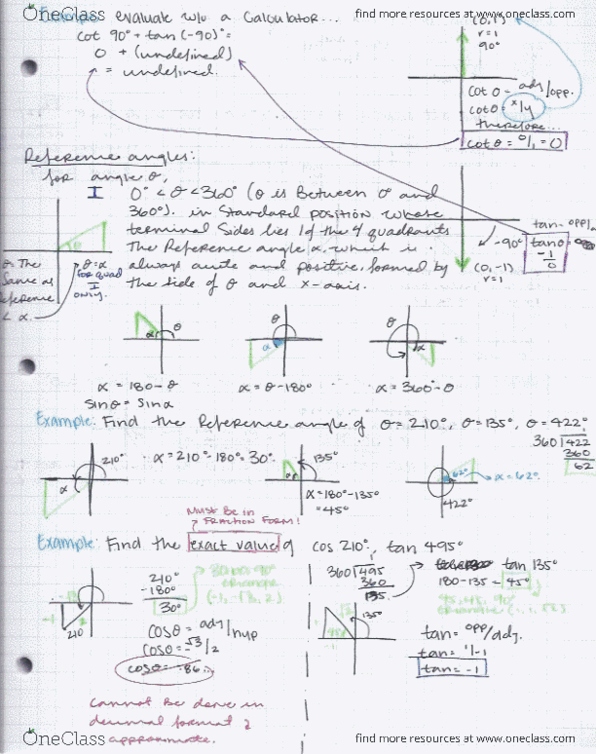 OneClass
find more resources at www.oneclass.com
Example: evaluate w/o a Calculator...
cot 90° + tan (-90)° =
0 + (undefined)
= undefined.
(0, 1)
r = 1
90°
cot θ = adj/opp.
cot θ = x/y
therefore...
cot θ = 0/1 = 0
Reference angles:
for angle θ,
I
0° < θ < 360° (θ is Between 0° and
360°). in Standard position whose
terminal Sides lies 1 of the 4 quadrants
The Reference angle α, which is
always acute and positive, formed by
the side of θ and x-axis.
θ = α
for quad
I
only.
θ = The
Same as
Reference
< α.
tan = opp/a
-90°
(0, -1)
r = 1
tan θ =
-1
0
α θ
θ α
θ α
α = 180 - θ
sin θ = sin α
α = θ - 180°
α = 360° - θ
Example: Find the Reference angle of θ = 210°, θ = 135°, θ = 422°
210°
α
α = 210° - 180° = 30°
135°
α
α = 180° - 135°
= 45°
62°
α = 62°
422°
360 422
360
62
MUST BE in
FRACTION FORM!
Example: Find the exact value of cos 210°, tan 495°
210
210°
- 180°
30°
cos θ = adj/hyp
cos θ = -√3/2
cos θ = -.86..
cannot be done in
decimal format 2
approximate.
360 495
1
360
135
tan 135°
180 - 135 = 45°
135°
tan = opp/adj.
tan = 1/-1
tan = -1
OneClass
find more resources at www.oneclass.com